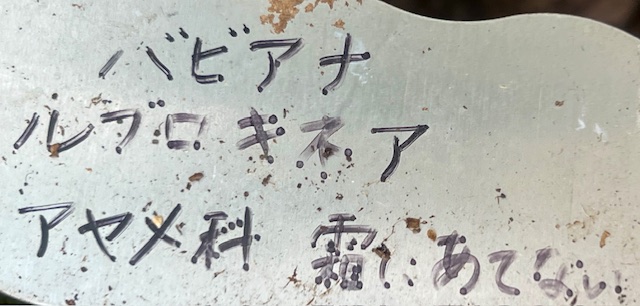 バビアナ
ルブロギネア
アヤメ科 霜にあてない